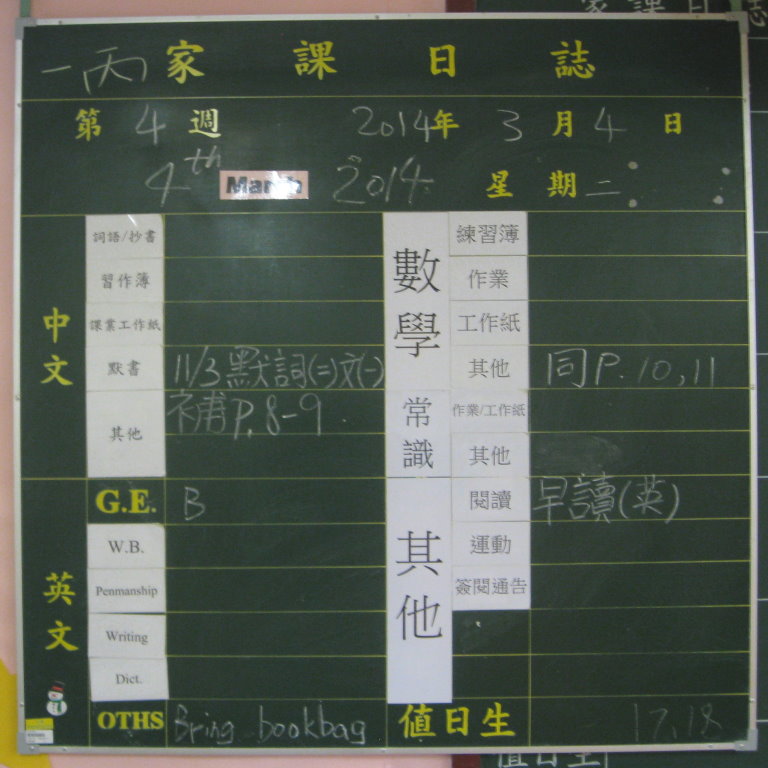 一丙 家課日誌
第 4 週 2014年 3 月 4 日
4th March 2014 星期二
中文
詞語/抄書
習作簿
課業工作紙
默書 11/3默詞(二)文(一)
其他 補P.8-9
英文
G.E. B
W.B.
Penmanship
Writing
Dict.
OTHS Bring bookbag
數學
練習簿
作業
工作紙
其他 同P.10,11
常識
作業/工作紙
其他
其他
閱讀 早讀(英)
運動
簽閱通告
值日生 17,18
值日生